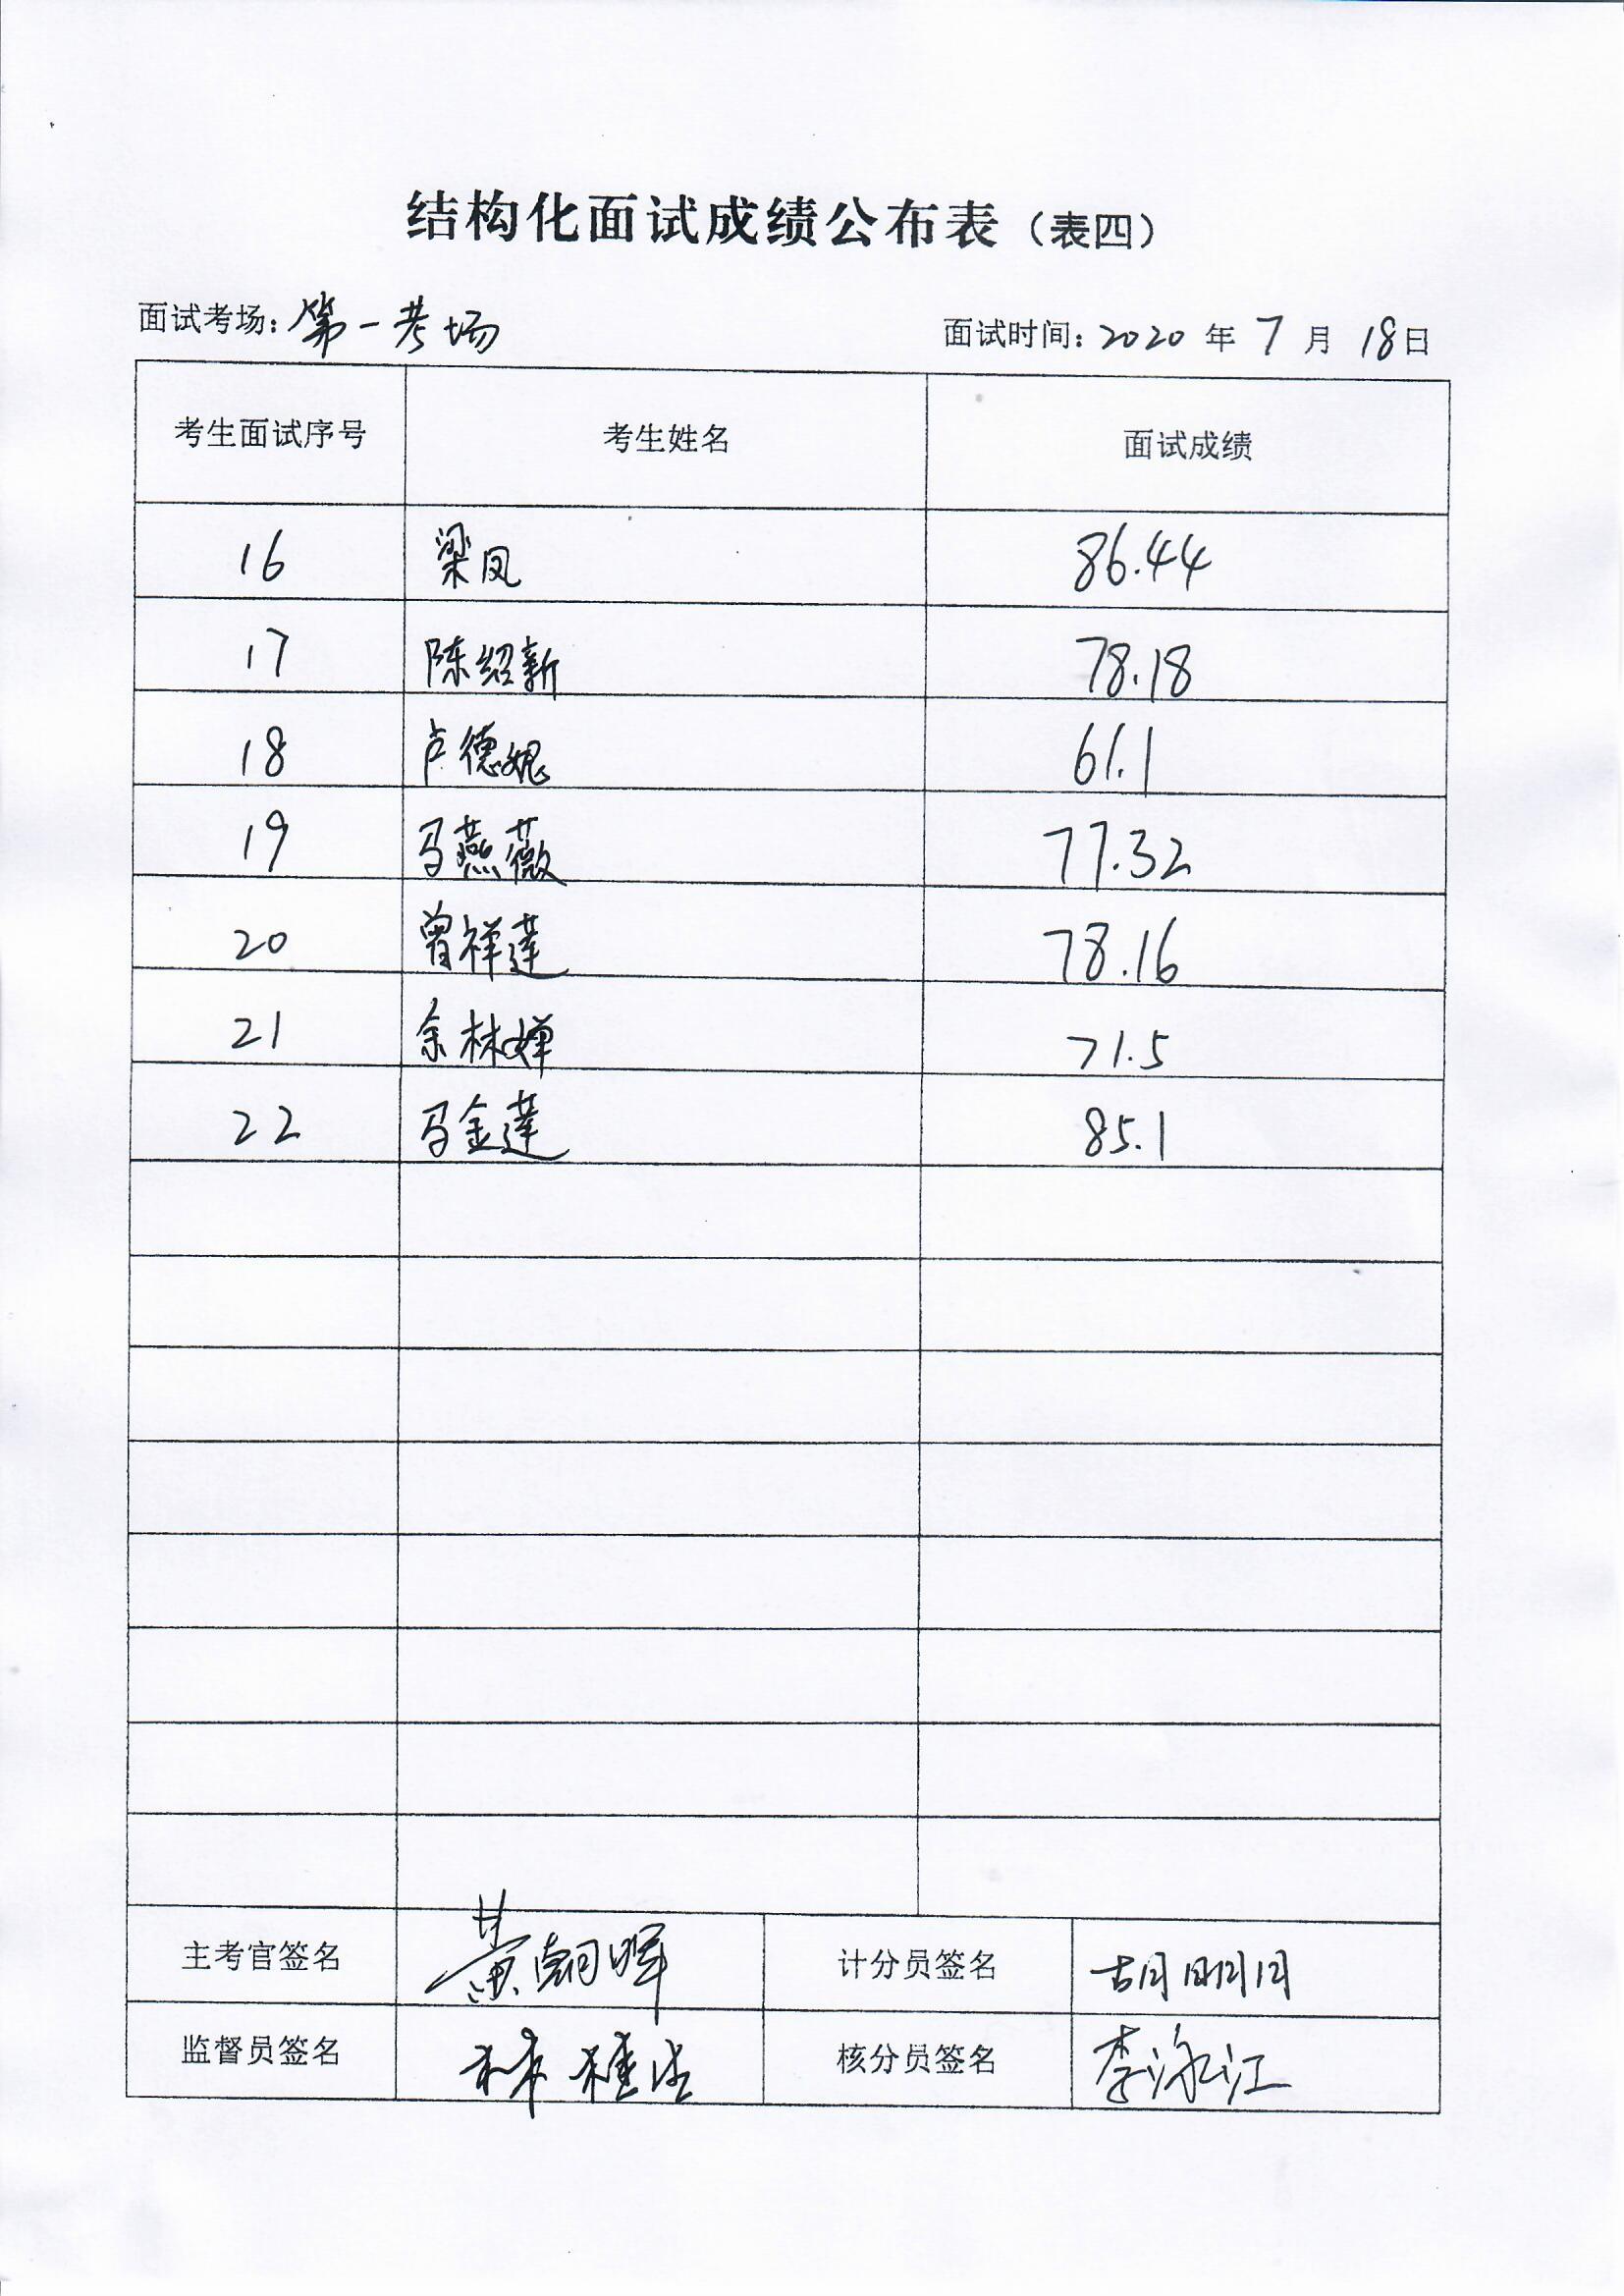 结构化面试成绩公布表（表四）
面试考场：第一考场 面试时间：2020年7月18日
考生面试序号 考生姓名 面试成绩
16 梁凤 86.44
17 陈绍新 78.18
18 卢德媲 61.1
19 马燕薇 77.32
20 曾祥莲 78.16
21 余林婵 71.5
22 马金莲 85.1
主考官签名 黄朝晖 计分员签名 胡明月
监督员签名 林 核分员签名 李泳江